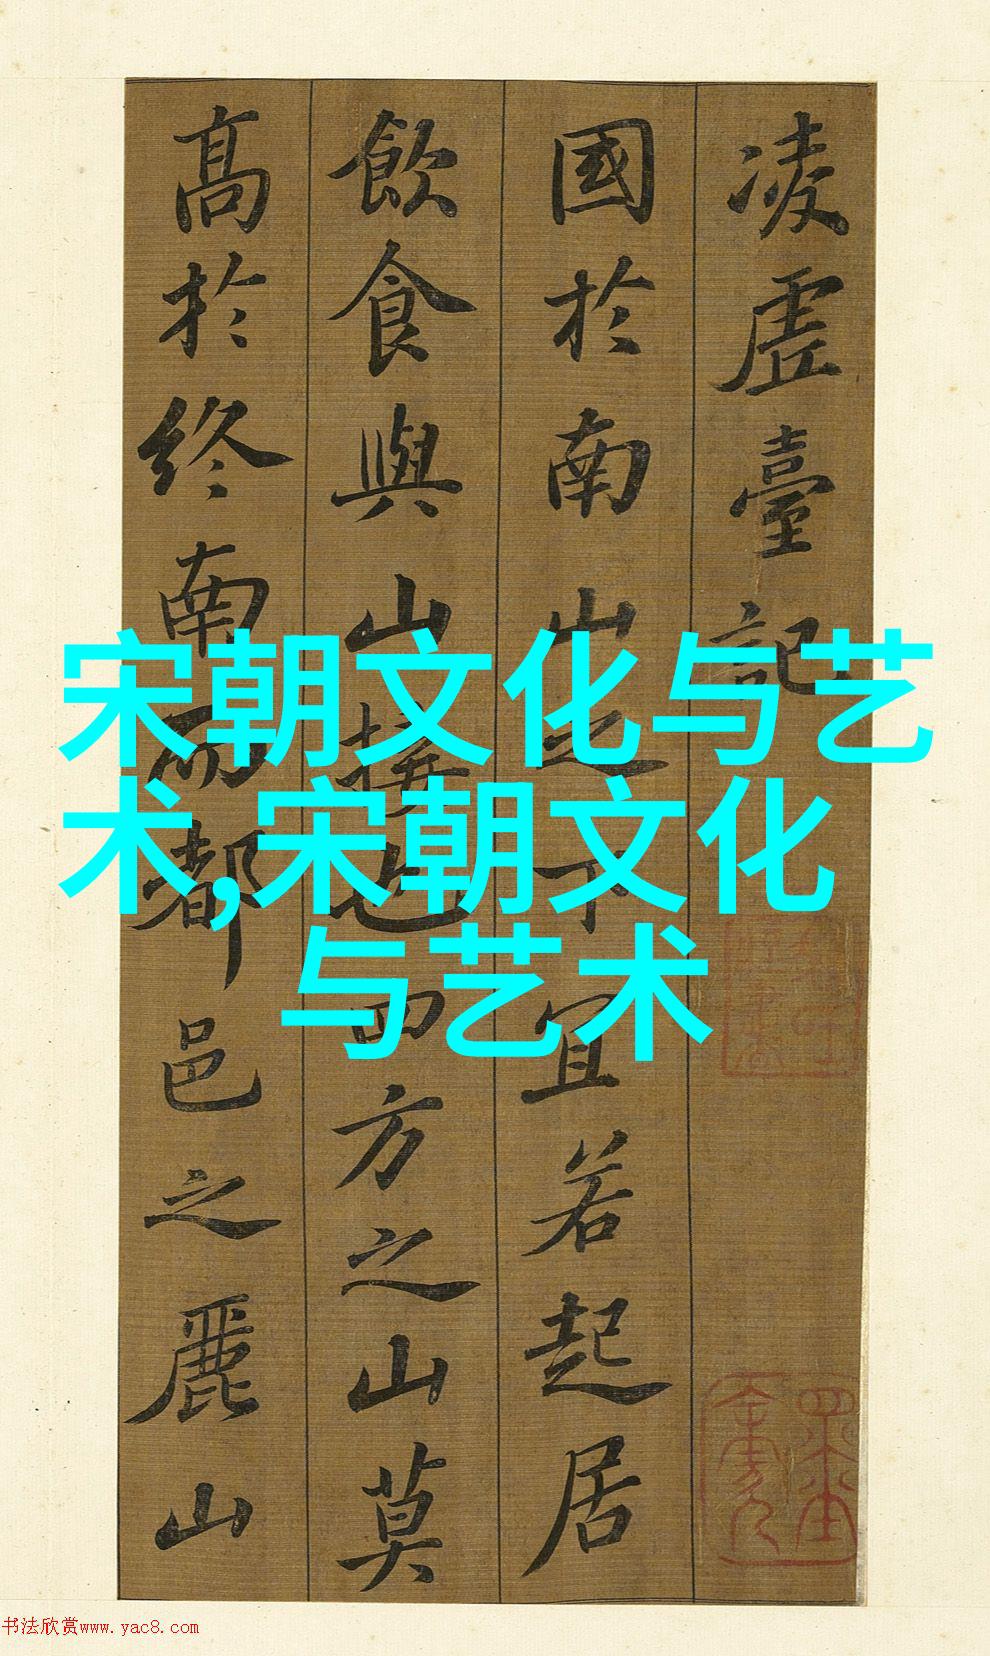 凌虛臺記
國於南山之下宜若起居
飲食與山接也四方之山莫
高於終南而都邑之麗山
宋朝文化与艺
术,宋朝文化
与艺术
书法欣赏www.yac8.com